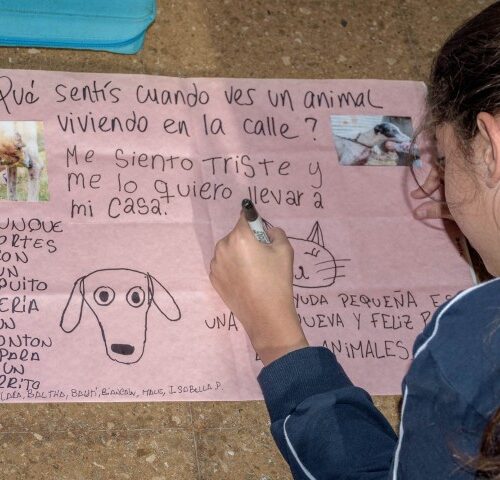 Qué sentís cuando ves un animal
viviendo en la calle?
Me siento triste y
me lo quiero llevar a
mi casa.
AUNQUE
PORTES
CON
UN
QUITO
SERIA
UN
MONTON
PARA
UN
RRITO
UDA PEQUEÑA ES
UNA NUEVA Y FELIZ
ANIMALES
CLARA, BALTHA, BAUTI, BIANCAN, MALE, ISABELLA P.